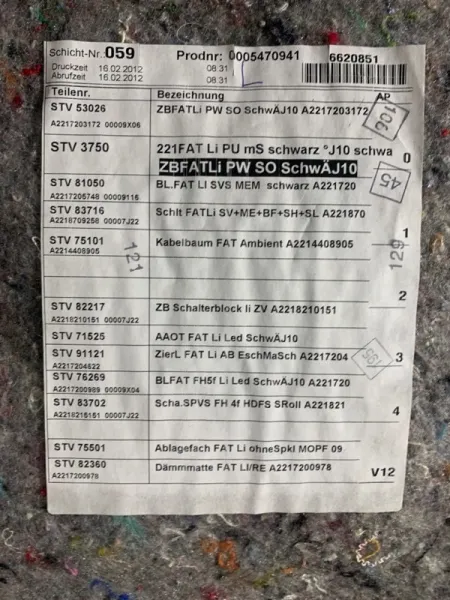 Schicht-Nr. 059 Prodnr: 0005470941 6620851
Druckzeit 16.02.2012 08:31
Abrufzeit 16.02.2012 08:31
Teilenr. Bezeichnung AP
STV 53026 ZBFATLi PW SO SchwÄJ10 A2217203172
A2217203172 00009X06
106
STV 3750 221FAT Li PU mS schwarz °J10 schwa 0
ZBFATLi PW SO SchwÄJ10
STV 81050 BL.FAT LI SVS MEM schwarz A221720
A2217205748 00009116
45
STV 83716 Schlt FATLi SV+ME+BF+SH+SL A221870
A2218709258 00007J22
1
STV 75101 Kabelbaum FAT Ambient A2214408905
A2214408905
121
129
2
STV 82217 ZB Schalterblock li ZV A2218210151
A2218210151 00007J22
STV 71525 AAOT FAT Li Led SchwÄJ10
STV 91121 ZierL FAT Li AB EschMaSch A2217204 3
A2217204822
STV 76269 BLFAT FH5f Li Led SchwÄJ10 A221720
A2217200989 00009X04
STV 83702 Scha.SPVS FH 4f HDFS SRoll A221821
A2218215151 00007J22
4
STV 75501 Ablagefach FAT Li ohneSpkl MOPF 09
STV 82360 Dämmmatte FAT LI/RE A2217200978
A2217200978
V12